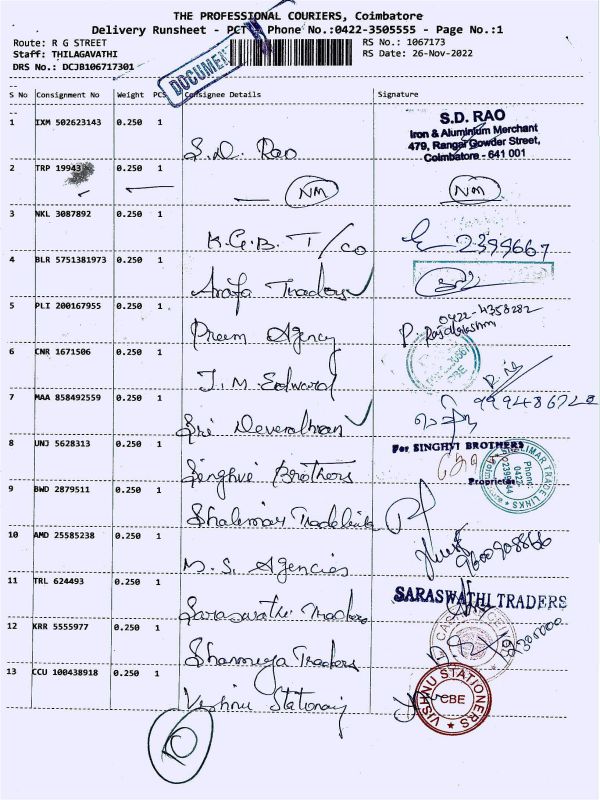 THE PROFESSIONAL COURIERS, Coimbatore
Delivery Runsheet - PCT Phone No.:0422-3505555 - Page No.:1
Route: R G STREET
RS No.: 1067173
Staff: THILAGAVATHI
RS Date: 26-Nov-2022
DRS No.: DCJB106717301
DOCUMENT
S No Consignment No Weight PCS Consignee Details Signature
1 IXM 502623143 0.250 1 S.D. Rao
S.D. RAO
Iron & Aluminium Merchant
479, Rangai Gowder Street,
Coimbatore - 641 001
2 TRP 19943 0.250 1 NM NM
3 NKL 3087892 0.250 1 K.G.B. T/co 2399667
4 BLR 5751381973 0.250 1 Arafa Traders
5 PLI 200167955 0.250 1 Prem Agency 0422-4358282
P. Rajalakshmi
CBE
6 CNR 1671506 0.250 1 J.M. Edward
7 MAA 858492559 0.250 1 Sri Devarathnan
8 UNJ 5628313 0.250 1 Singhvi Brothers
For SINGHVI BROTHERS
Proprietor
9 BWD 2879511 0.250 1 Shalimar Tradelink
SHALIMAR TRADE LINKS
Phone
0422
10 AMD 25585238 0.250 1 M.S. Agencies
11 TRL 624493 0.250 1 Saraswathi Traders
SARASWATHI TRADERS
12 KRR 5555977 0.250 1 Shanmuga Traders
13 CCU 100438918 0.250 1 Vishnu Stationary
VISHNU STATIONERS
CBE